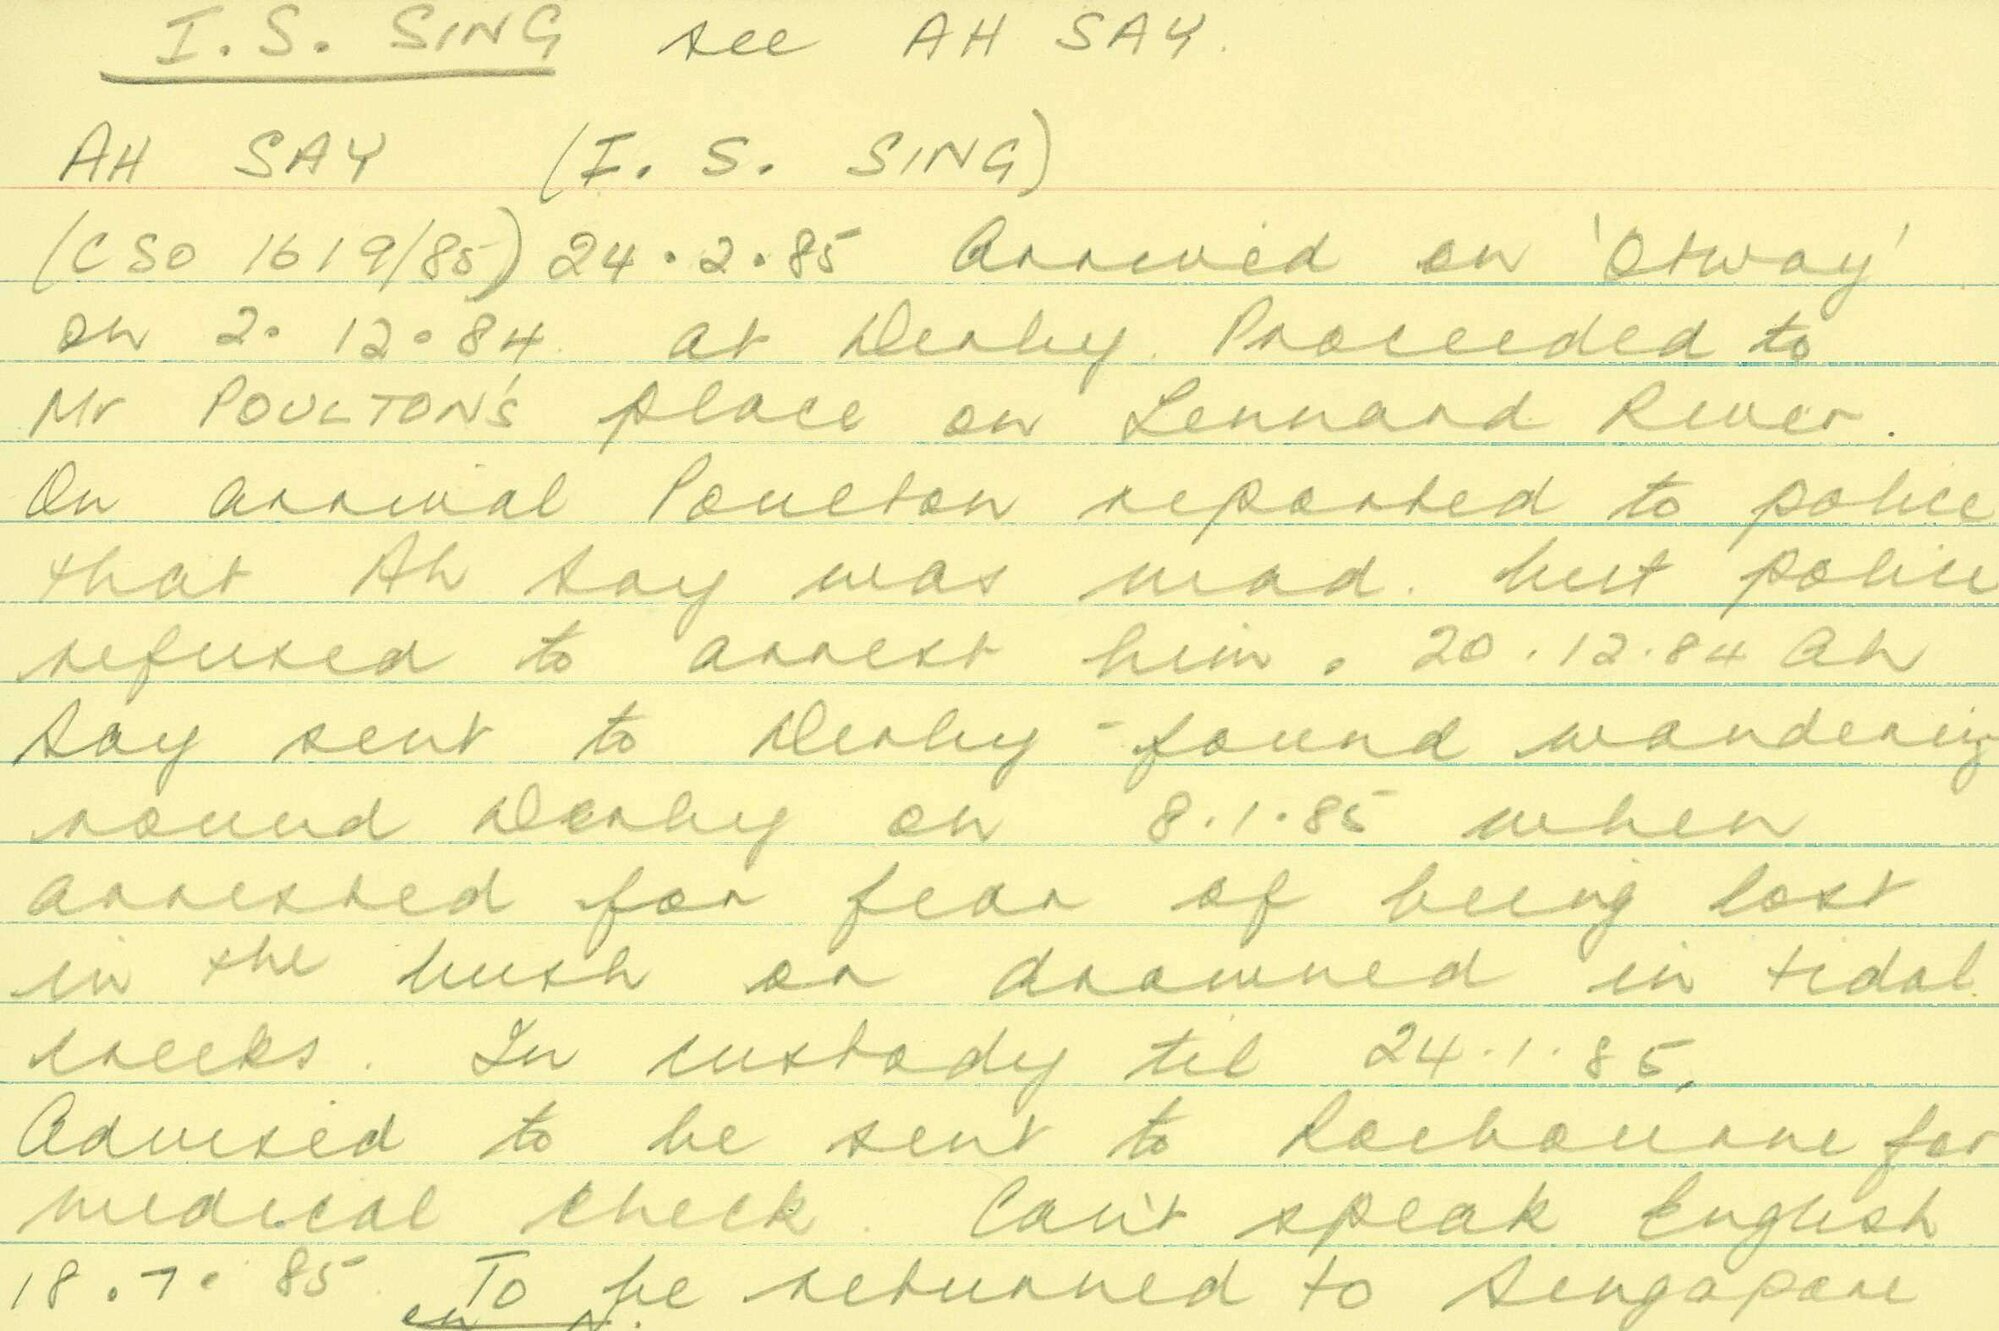 I. S. SING see AH SAY.
AH SAY (I. S. SING)
(CSO 1619/85) 24.2.85 Arrived on 'Otway'
on 2.12.84 at Derby. Proceeded to
Mr POULTON'S place on Lennard River.
On arrival Poulton reported to police
that Ah Say was mad. but police
refused to arrest him. 20.12.84 Ah
Say sent to Derby - found wandering
round Derby on 8.1.85 when
arrested for fear of being lost
in the bush or drowned in tidal
creeks. In custody til 24.1.85.
Advised to be sent to Roebourne for
medical check. Can't speak English
18.7.85 To be returned to Singapore